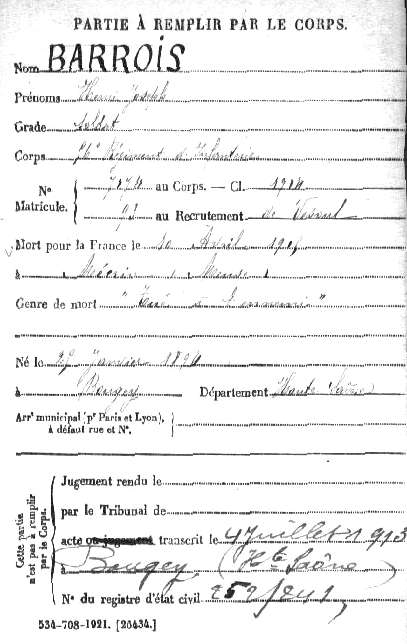 PARTIE À REMPLIR PAR LE CORPS.
Nom BARROIS
Prénoms Henri Joseph
Grade Soldat
Corps Régiment d'Infanterie
N° Matricule. au Corps. — Cl. 1914
au Recrutement de Vesoul
Mort pour la France le 10 Avril
à Mécrin (Meuse)
Genre de mort "Tué à l'ennemi"
Né le Janvier 1894
à Bougey Département Haute Saône
Arrt municipal (pr Paris et Lyon),
à défaut rue et N°.
Cette partie n'est pas à remplir par le Corps.
Jugement rendu le
par le Tribunal de
acte ou jugement transcrit le Juillet
à Bougey (Hte Saône)
N° du registre d'état civil 252/241
534-708-1921. [26434.]